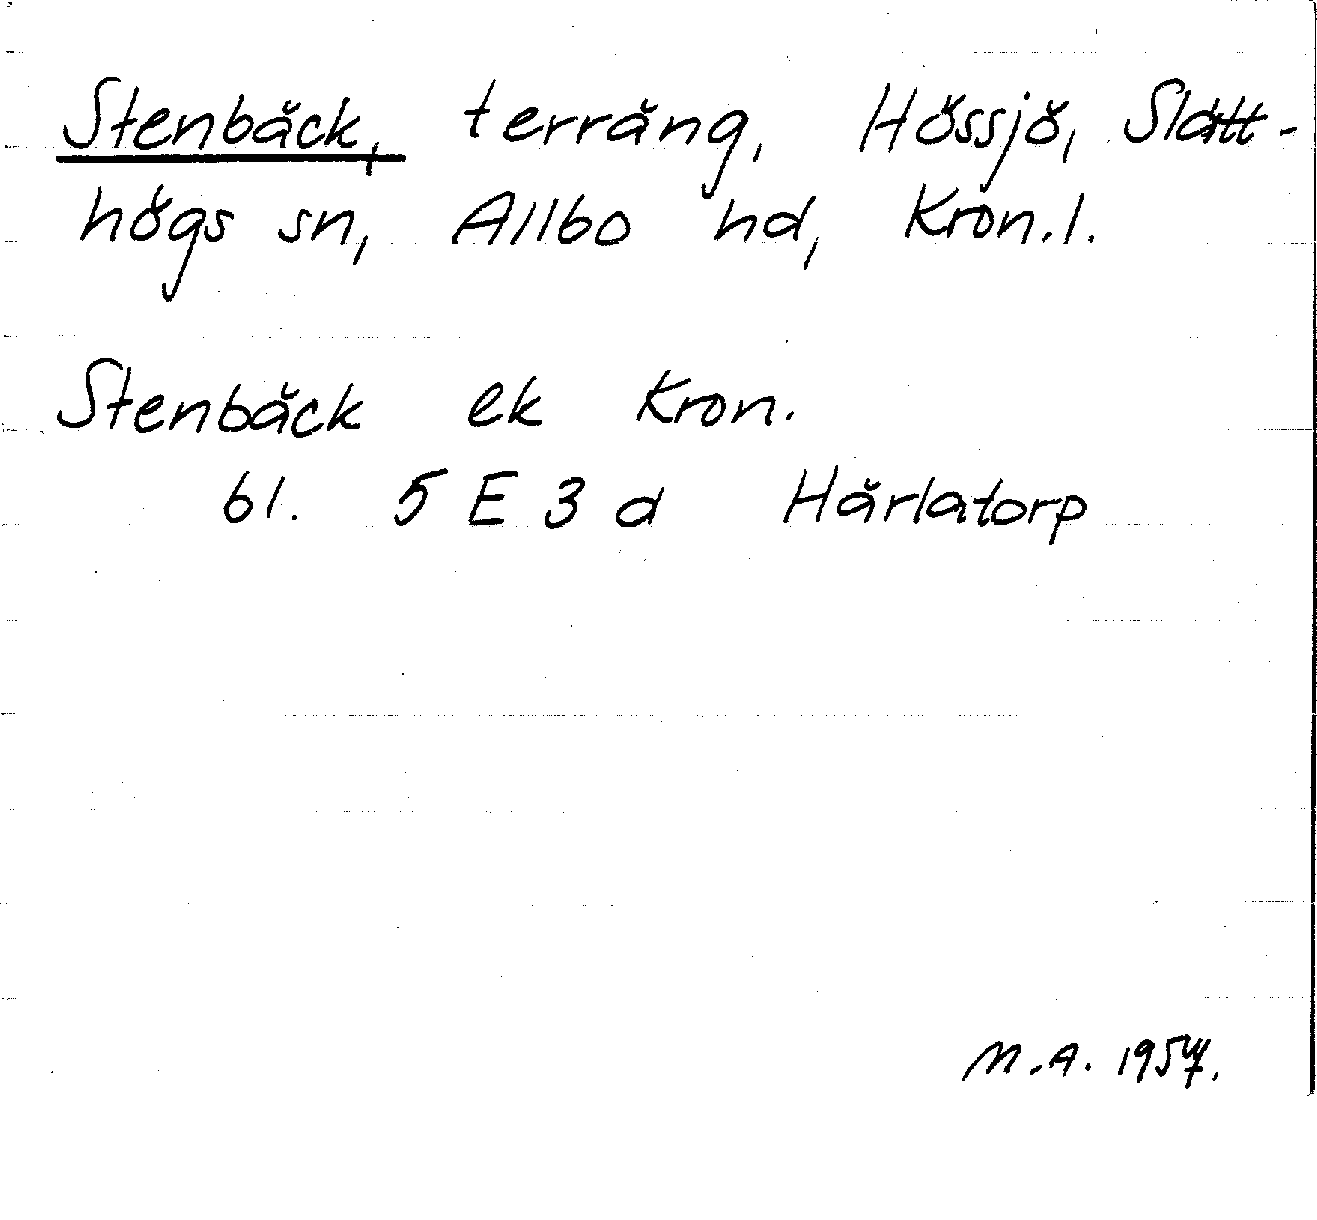 Stenbäck, terräng, Hössjö, Slätt-
högs sn, Allbo hd, Kron.l.
Stenbäck ek Kron.
61. 5 E 3 d Härlatorp
M.A. 1957.